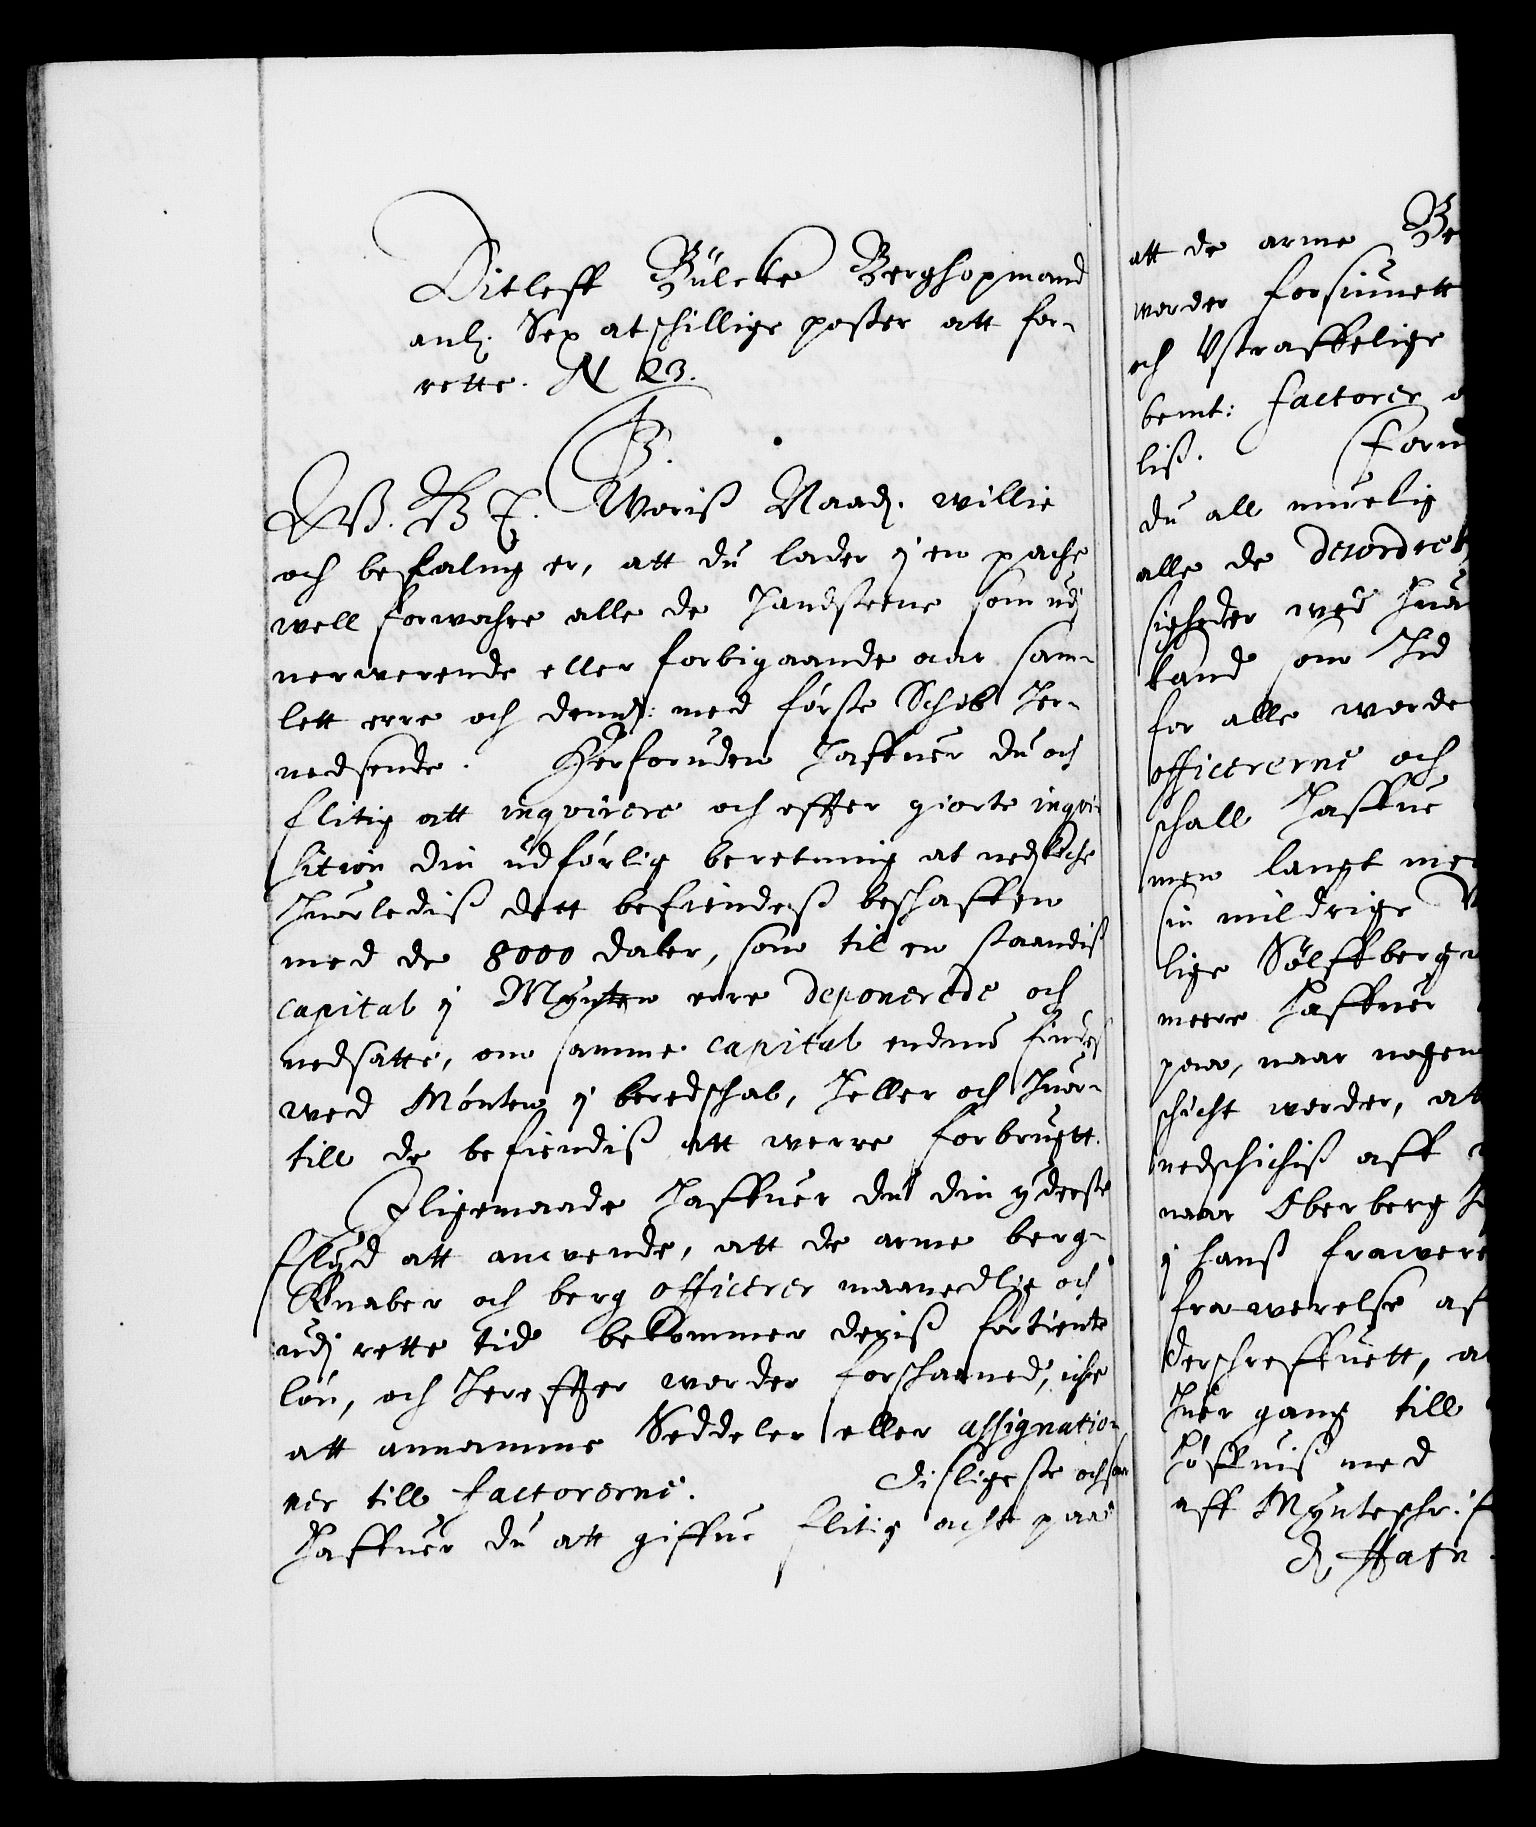 Ditleff Bülcke Berghopmand
anl: Sex atschillige poster att for-
rette. N 23.
W. G. T. Woriß Naad. willie
och befaling er, att du lader y en pache
well forwahre alle de Handsteene som udj
nerwerende eller forbigaande aar sam-
lett erre och dennd: med förste Schib her-
nedsende. Herforuden haffuer du och
flitig att inqvirere och effter giorte inqvi-
sition din udförlig beretning at nedskiche
huorlediß dett befindeß beschaffen
med de 8000 daler, som til en staandiß
capital y Mynten erre deponerede och
nedsatte, om samme capital endnu findeß
wed Mönten y beredschab, heller och huor-
till de befiendiß att werre forbrugtt.
Iligemaade haffuer du din yderste
flyd att anwende, att de arme berg-
Knaber och berg officerer maanedlig och
udj rette tid bekommer deriß fortiente
lön, och hereffter worder forschaaned, iche
att annamme Seddeler eller assignatio-
ner till factorerne. Disligeste och saa
haffuer du att giffue flitig acht paa
att de arme Be
worder forsiunett
och Vstraffelige
bemt: factorer
liß. Forud
du all muelig
alle de desordre
sigheder wed hua
kand som Jnd
for alle worde
officererne och
schall haffue
men langt me
sin mildrige
lige Sölffberg
meere haffuer
paa, naar nogen
schicht worder, at
nedschichiß aff
naar Oberberg H
y hanß frawere
frawerelse af
derschreffuett, a
huer gang till
höffuiß med
aff Mynteschr:
d. Hafn